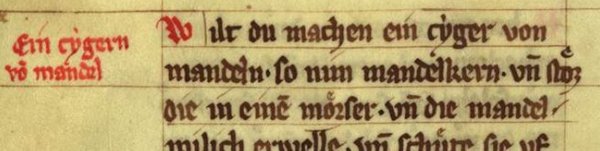 Ein cẏgern
vō mandel
Wilt du machen ein cẏger von
mandeln · so nim mandelkern · vn̄ stoͤz
die in einē moͤrser · vn̄ die mandel
milich erwelle · vn̄ schuͤte sie vf